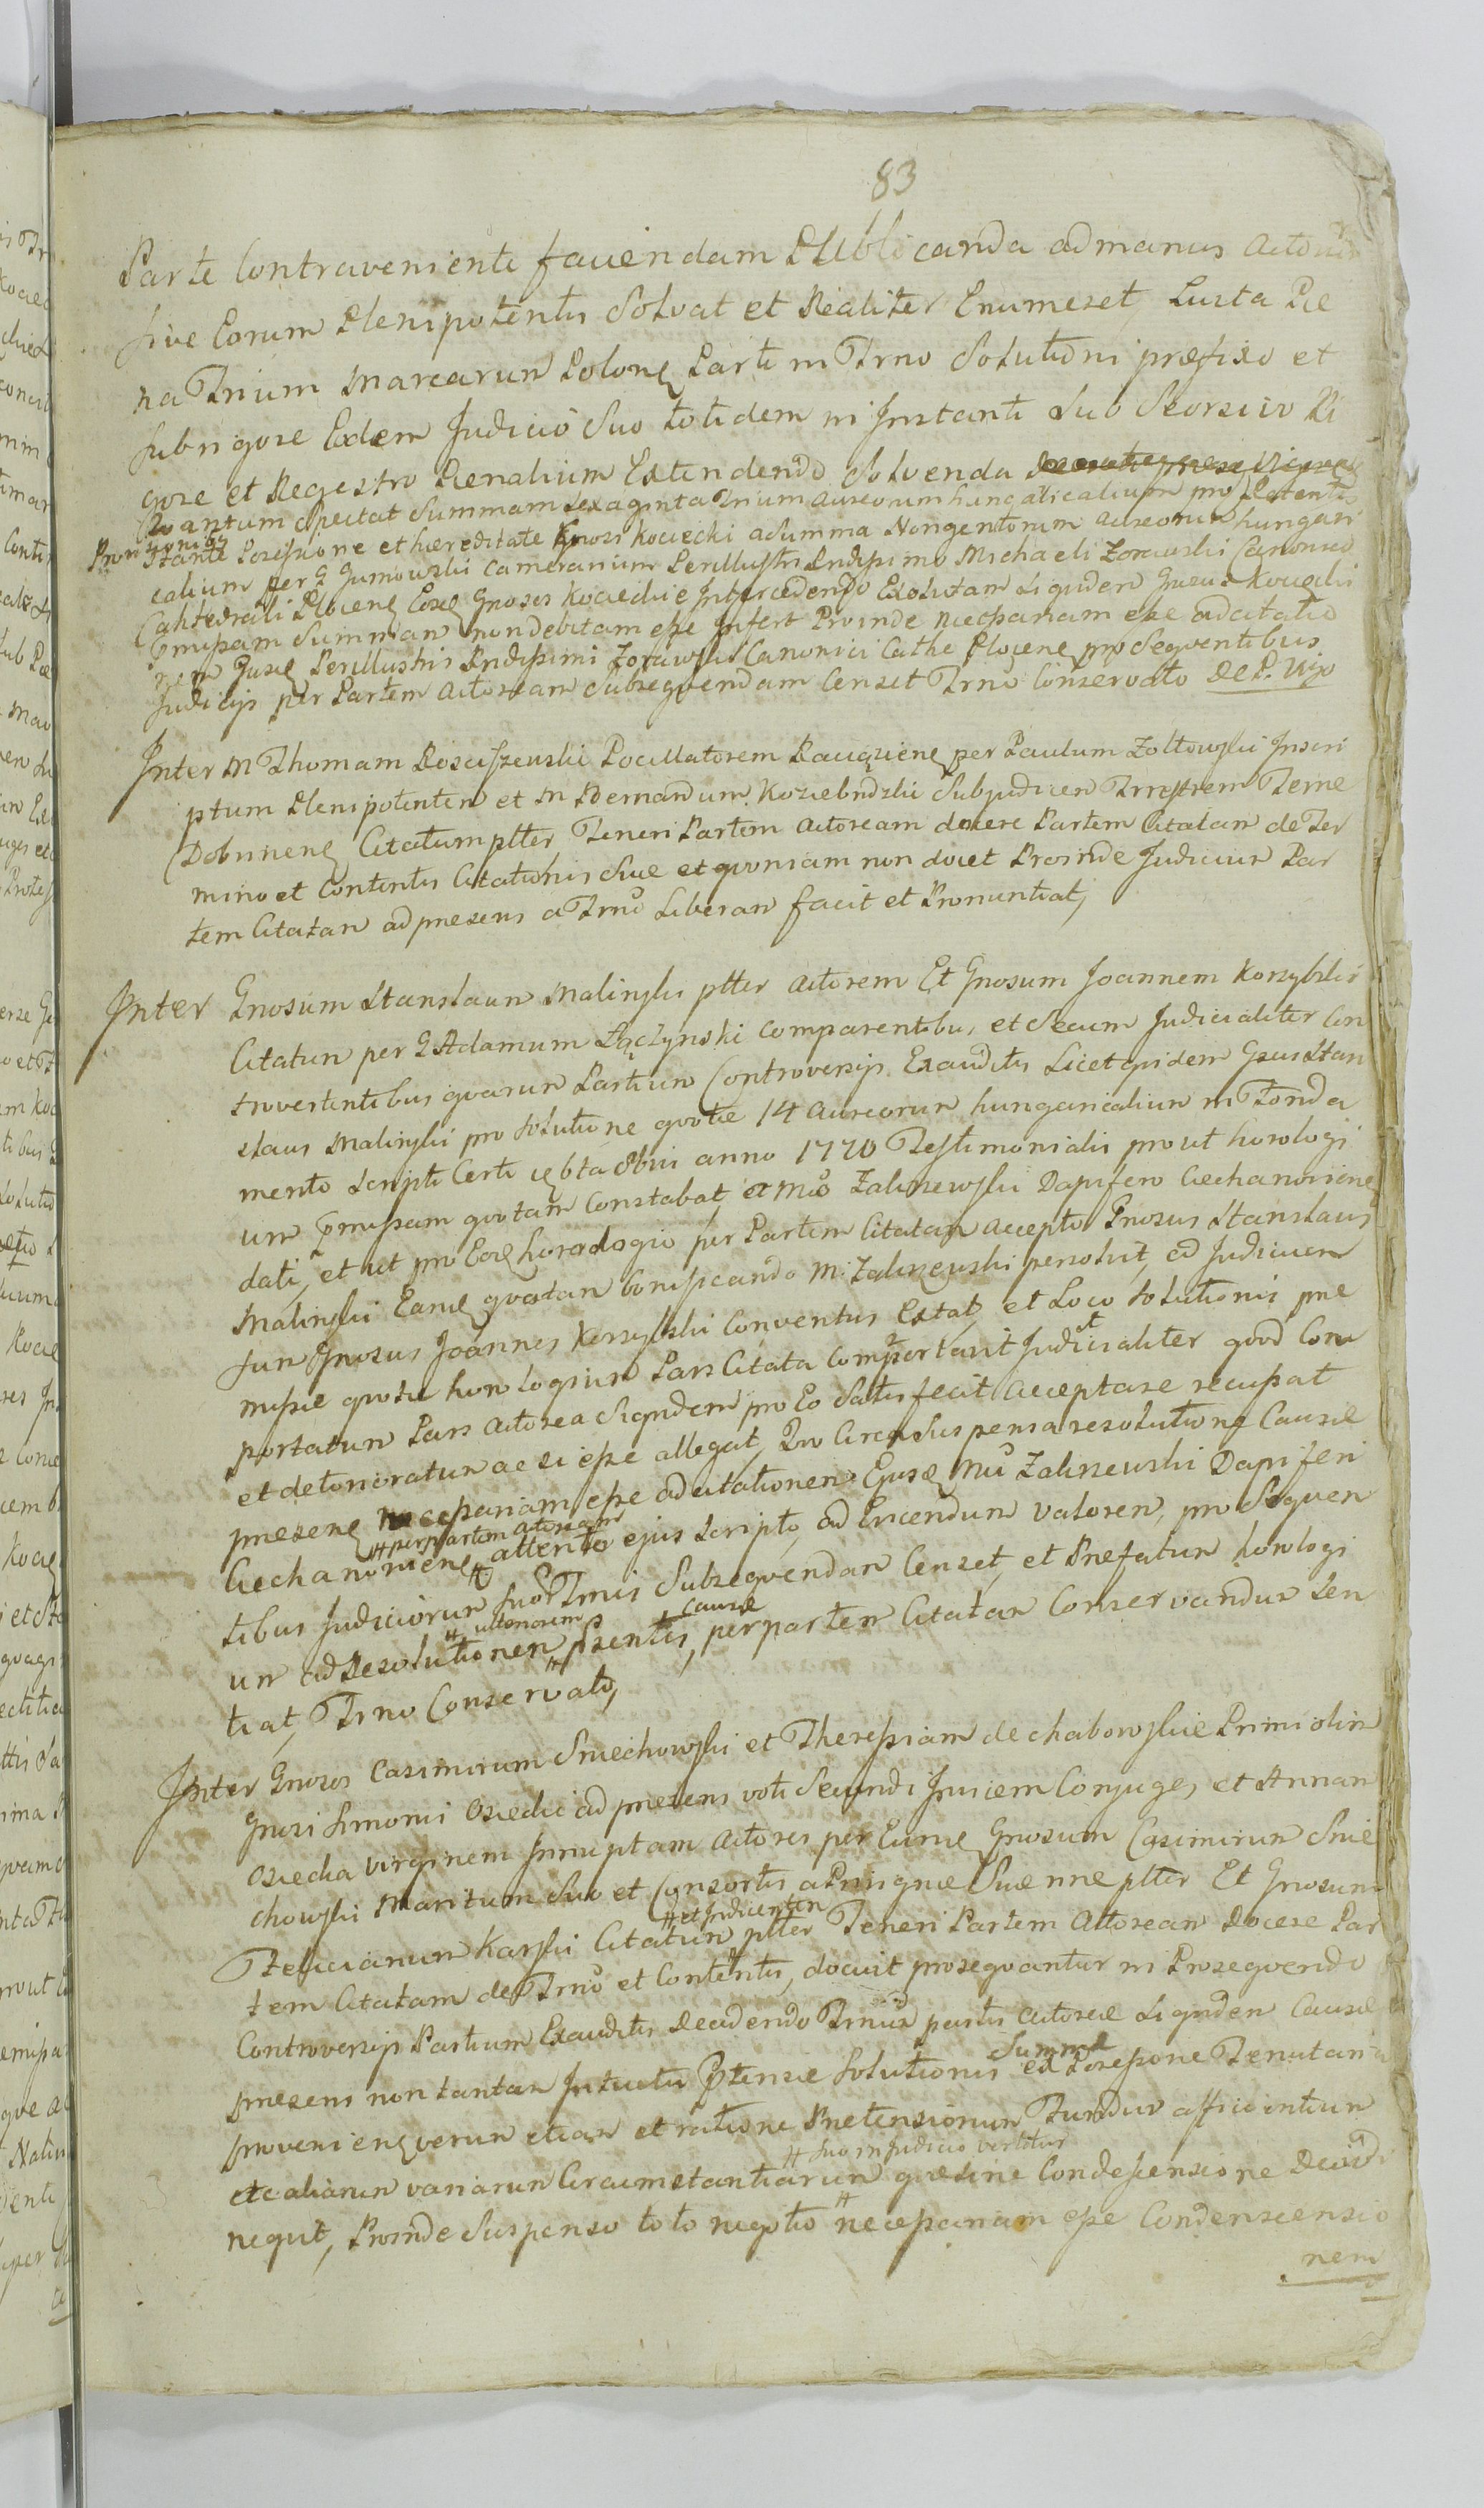 83
Parte Contraveniente favendam Publicanda ad manus Actorum
sive Eorum Plenipotentis Solvat et Realiter Enumeret, Luita Pæ
na Trium Marcarum Polonę Parti in Trno Solutioni præfixo et
sub rigore Eodem Judicio Suo totidem in Instanti Sub Seorsivo Ri
gore et Regestro Pœnalium Extendendo Solvenda
Quantum spectat Summam sexaginta Trium aureorum hungaricalium pro Retentis
Provisionibus
stante Possessione et hæreditate Gnosi Kociecki a Summa Nongentorum aureorum hungari
calium per G Gumowski Camerarium Perillustri Rndissimo Michaeli Zorawski Canonico
Cathedrali Plocenę Eosę Gnosos Kocieckie Intercedendo Exolutam siquidem Gnosus Kociecki
pmissam Summam non debitam esse Infert Proinde necessariam esse adcitatio
nem Ejusę Perillustris Rndissimi Zorawski Canonici Cathe Plocenę pro Seqventibus
Judicijs per Partem Actoream Subseqvendam Censet Trno Conservato De P. Ujo
Inter M Thomam Rosciszewski Pocillatorem Raciązienę per Paulum Zoltowski Inscri
ptum Plenipotentem et M Bernardum Koziebrodzki Subjudicem Trrestrem Terræ
Dobrinenę Citatum ptter Teneri Partem Actoream docere Partem Citatam de Ter
mino et Contentis Citationis Suæ et qvoniam non docet Proinde Judicium Par
tem Citatam ad presens a Trno Liberam facit et Pronuntiat,
Inter Gnosum Stanislaum Malinski ptter Actorem Et Gnosum Joannem Korzybski
Citatum per G Adamum Łączynski Comparentibus et Secum Judicialiter Con
trovertentibus qvarum Partium Controversijs Exauditis Licet qvidem Gnosus Stani
slaus Malinski pro Solutione qvotæ 14 Aureorum hungaricalium in Fonda
mento Scripti Certi 10bta 8bris anno 1770 Testimonialis prout horologi
um pmissam qvotam Constabat, et Mco Zaliszewski Dapifero Ciechanoviene
dati, et ut pro Eoę horologio per Partem Citatam accepto Gnosus Stanislaus
Malinski Eamę qvotam Bonificando M: Zaliszewski persolvit, ad Judicium
suum Gnosus Joannes Korzybski Conventus Extat, et Loco Solutionis præ
missæ qvotæ horologium Pars Citata Comportavit Judicialiter qvod Com
portatum Pars Actorea Siqvidem pro Eo Satisfecit acceptare recusat
et deterioratum ac si esse allegat, Quo Circa Suspensa resolutione Causæ
presenę necessariam esse adcitationem Ejusę Mci Zaliszewski Dapiferi
# per partem actoream
Ciechanovienę # attento ejus Scripto, ad Eviccendum valorem, pro Seqven
tibus Judiciorum Suor Trnis Subseqvendam Censet, et Præfatum horologi
# ulteriorem causæ
um ad Resolutionem # psentis, per partem Citatam Conservandum Sen
tiat, Trno Conservato,
Inter Gnosos Casimirum Smiechowski et Theressiam de Chabowskie Primi olim
Gnosi Simonis Osiecki ad presens voti Secundi Invicem Conjuges, et Annam
Osiecka virginem Innuptam Actores per Eumę Gnosum Casimirum Smie
chowski Maritum Suo et Consortis a Privignæ Suæ nne ptter Et Gnosum
# et Indicentem
Felicianum Karski Citatum ptter Teneri Partem Actoream Docere Par
tem Citatam de Trno et Contentis, docuit proseqvantur in Proseqvendo
Controversijs Partium Exauditis Decidendo Trnum partis actoreæ Siqvidem Causæ
Summæ
presens non tantum Intuitu Ptensæ Solutionis ex Possessione Tenutaria
provenienę verum etiam et ratione Prætensionum Fundum afficientium
# suo in Judicio vertitur
et aliarum variarum Circumstantiarum qvæ sine Condescensione Decidi
neqvit, Proinde Suspenso toto negotio # necessariam esse Condenscensio
nem